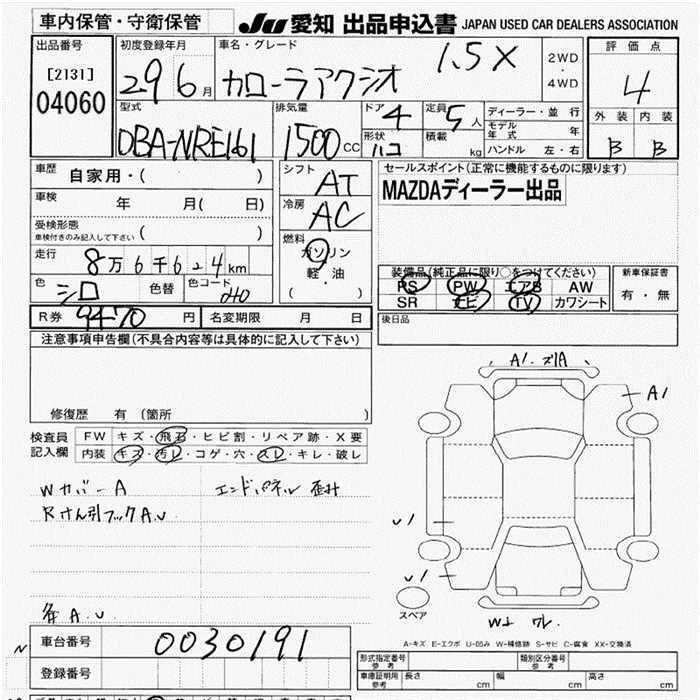 車内保管・守衛保管
JU 愛知 出品申込書 JAPAN USED CAR DEALERS ASSOCIATION
出品番号
[2131]
04060
初度登録年月
29 6月
車名・グレード
カローラアクシオ 1.5X
2WD
・
4WD
評価点
4
外装 内装
B B
型式
DBA-NRE161
排気量
1500cc
ドア 4
形状 ハコ
定員 5人
積載 kg
ディーラー・並行
モデル年式 年
ハンドル 左・右
車歴 自家用・( )
車検 年 月( 日)
受検形態
車検付きのみ記入して下さい ( )
走行 8万6千624km
色 シロ 色替 色コード 040
シフト AT
冷房 AC
燃料
ガソリン
軽・油
( )
R券 9470円 名変期限 月 日
セールスポイント(正常に機能するものに限ります)
MAZDAディーラー出品
装備品(純正品に限り○をつけてください)
PS PW エアB AW
SR ナビ TV カワシート
新車保証書
有・無
後日品
注意事項申告欄(不具合内容等は具体的に記入して下さい)
修復歴 有(箇所 )
検査員記入欄
FW キズ・飛石・ヒビ割・リペア跡・X要
内装 キズ・汚レ・コゲ・穴・スレ・キレ・破レ
Wカバー A
エンドパネル 歪み
Rけん引フックA.U
各A.U
A1.ズレA
A1
U1
U1
スペア
A-キズ E-エクボ U-凹み W-補修跡 S-サビ C-腐食 XX-交換済
N
車台番号 0030191
登録番号
形式指定番号 参考
類別区分番号 参考
車庫証明用 参考 長さ cm 幅 cm 高さ cm